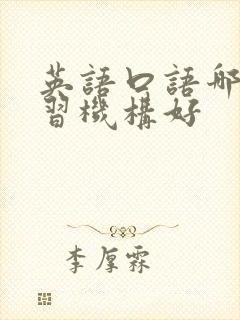 英語口語哪
習機構好
李厚霖